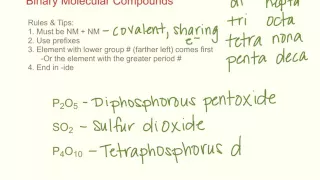 Binary Molecular Compounds
di hepta
Rules & Tips:
1. Must be NM + NM - covalent, sharing e-
tri octa
2. Use prefixes
tetra nona
3. Element with lower group # (farther left) comes first
-Or the element with the greater period #
penta deca
4. End in -ide
P2O5 - Diphosphorous pentoxide
SO2 - Sulfur dioxide
P4O10 - Tetraphosphorus d